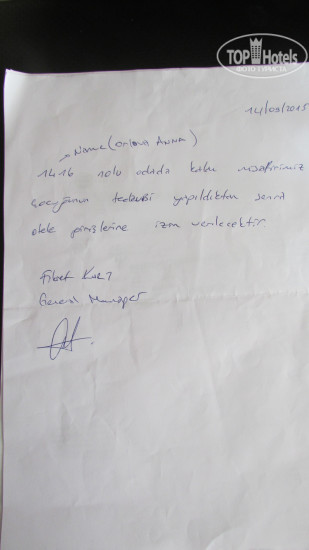 TOP Hotels
14/09/2015
Name (
ANNA)
1416 nolu odada kalan misafirimiz
çocuğunun tedavisi yapıldıktan sonra
otele girişlerine izin verilecektir
Fikret KURT
General Manager